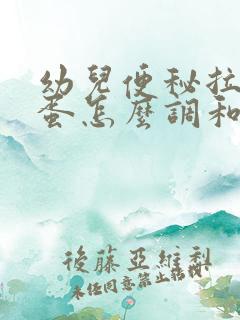 幼兒便秘拉
蛋怎麼調和
後藤亞維梨
未任同意禁止轉載